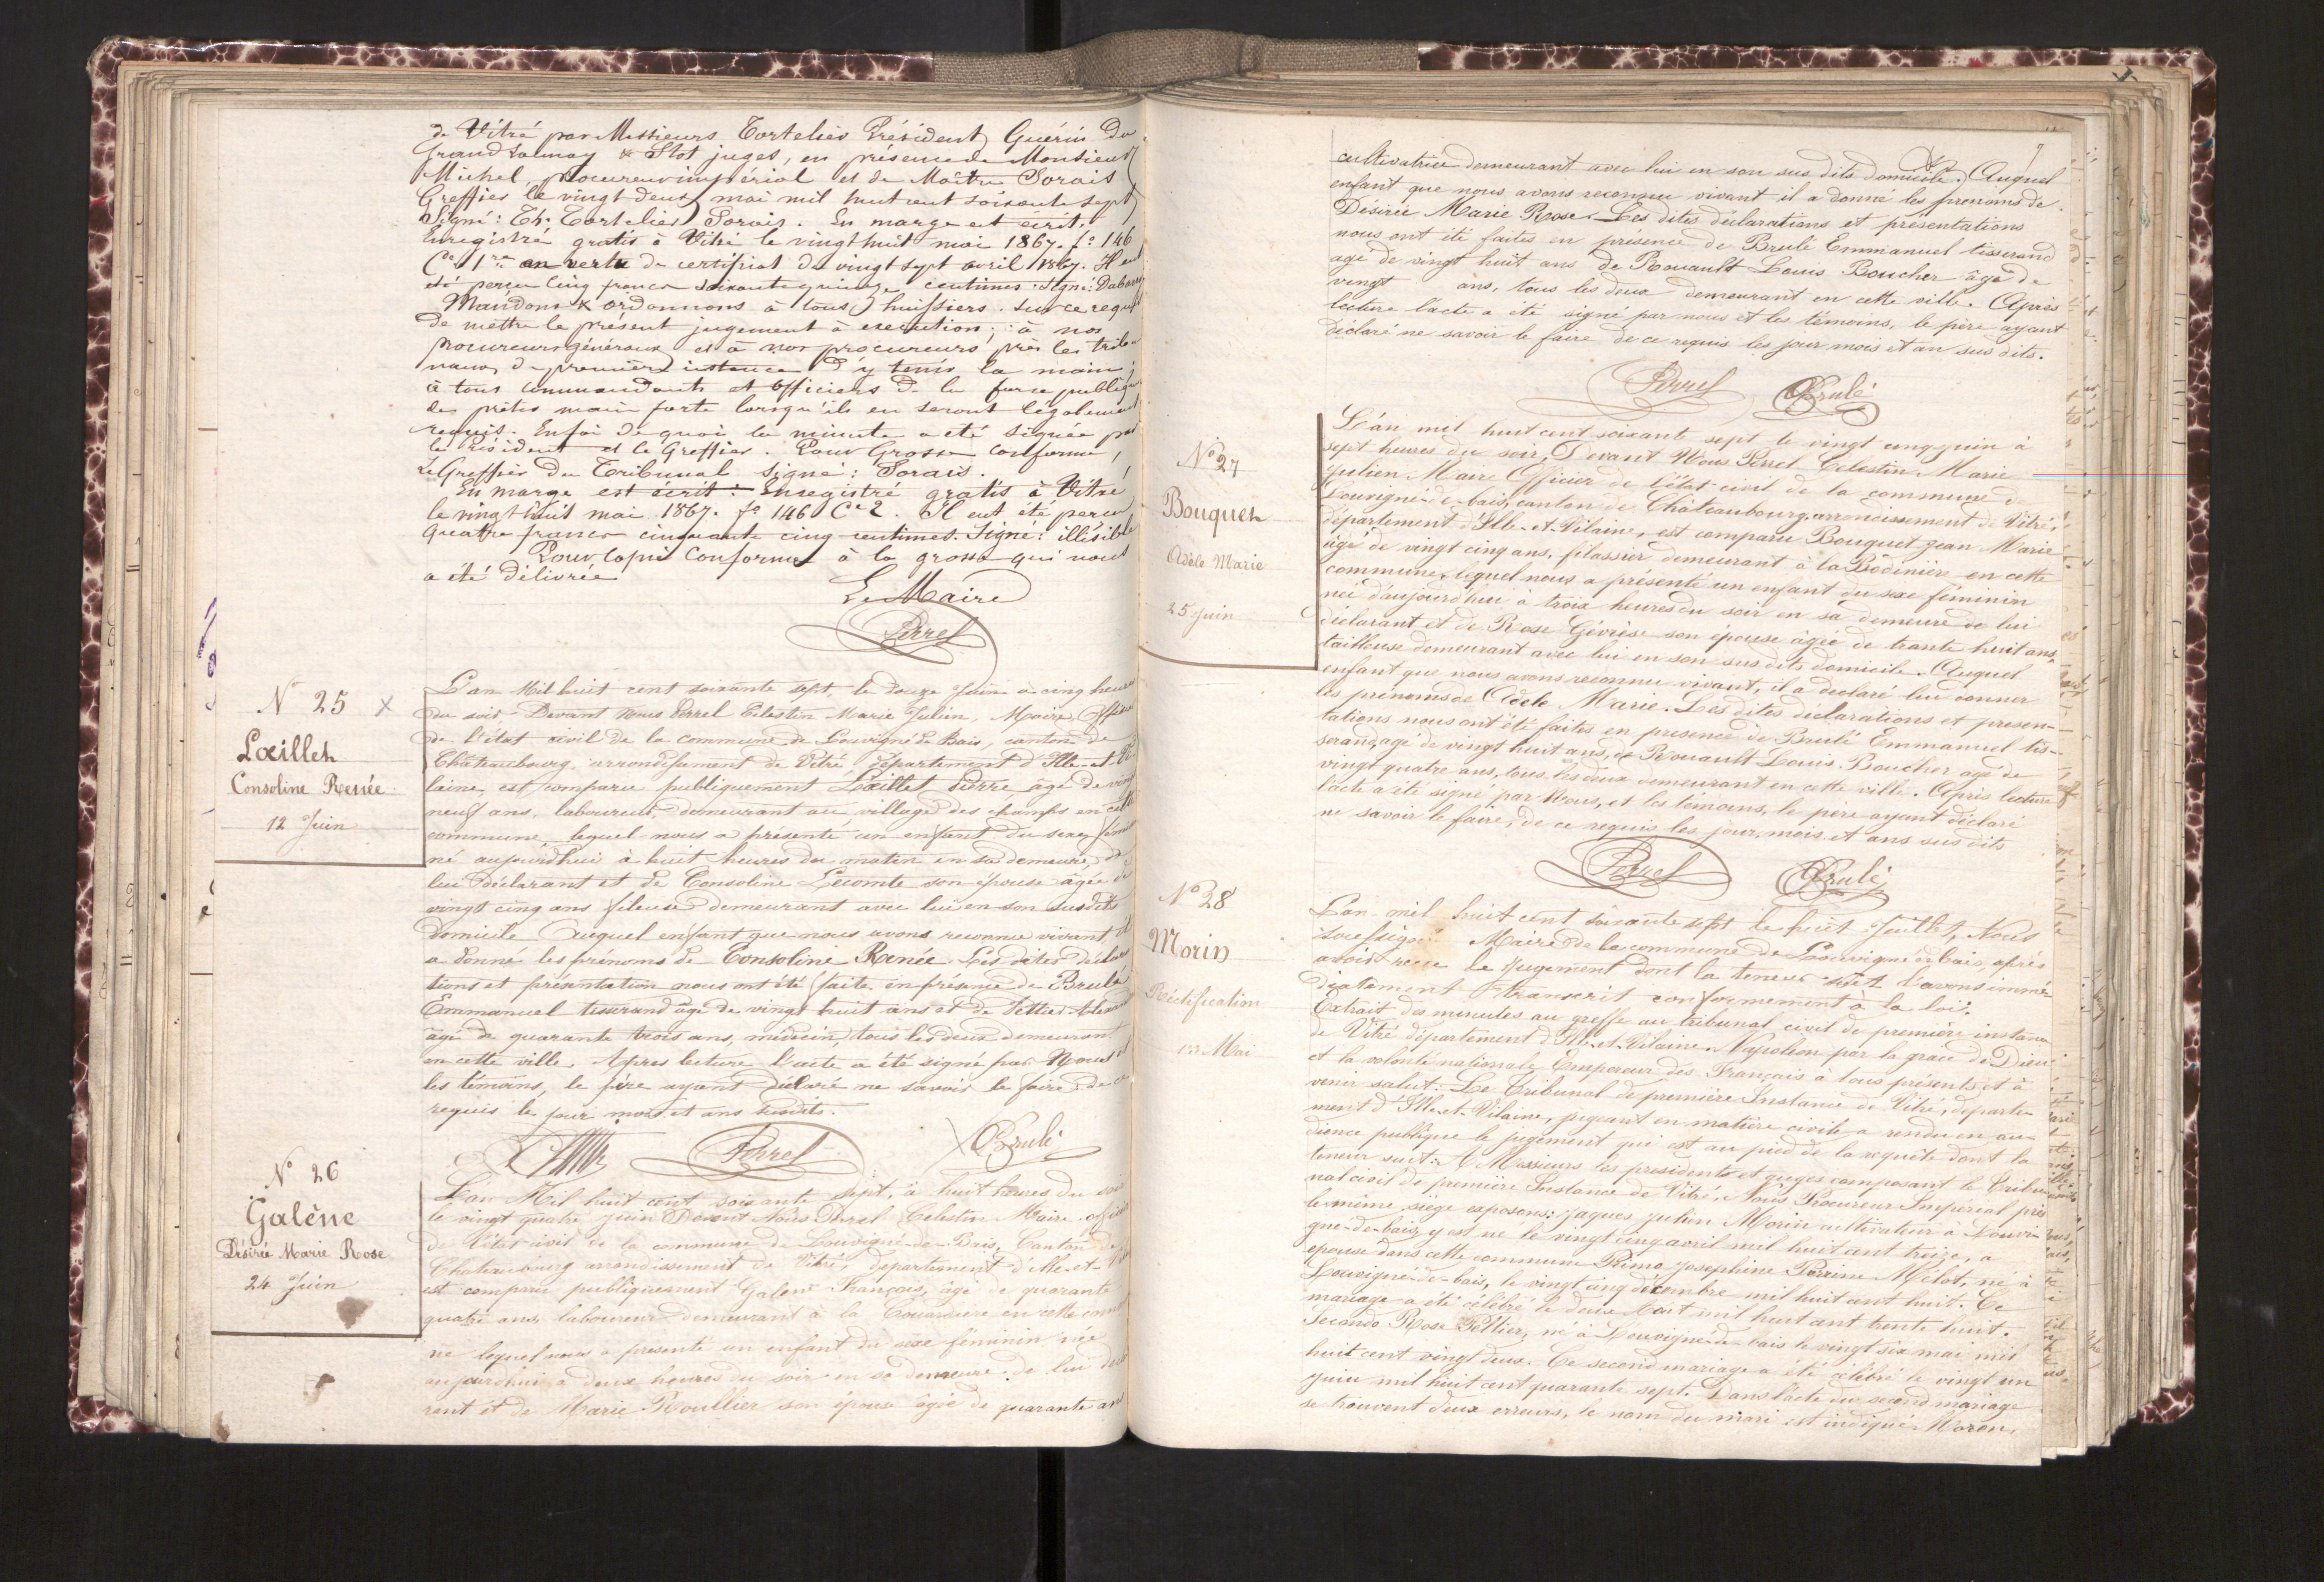 de Vitré par Messieurs Tortelier Président Guérin du
Grand Launay & Slot juges, en présence de Monsieur
Michel, procureur impérial et de Maître Sorais
Greffier le vingt deux mai mil huit cent soixante sept
Signé: Th. Tortelier Sorais. En marge est écrit:
Enregistré gratis à Vitré le vingt huit mai 1867. fo 146
Ce 1re en vertu de certificat du vingt sept avril 1867. Il eut
été perçu cinq francs soixante quinze centimes. Signé:
Mandons & ordonnons à tous huissiers sur ce requis
de mettre le présent jugement à exécution; à nos
procureurs généraux et à nos procureurs près les tribu
naux de première instance d'y tenir la main;
à tous commandants et officiers de la force publique
de prêter main forte lorsqu'ils en seront légalement
requis. En foi de quoi la minute a été signée par
le Président et le Greffier. Pour Grosse conforme,
Le Greffier du Tribunal signé: Sorais.
En marge est écrit: Enregistré gratis à Vitré
le vingt huit mai 1867. fo 146 Ce 2. Il eut été perçu
quatre francs cinquante cinq centimes. Signé: illisible
Pour Copie Conforme à la grosse qui nous
a été délivrée
Le Maire
Perrel
N° 25
Lœillet
Consoline Renée
12 Juin
L'an Mil huit cent soixante sept, le douze Juin à cinq heures
du soir. Devant nous Perrel Célestin Marie Julien, Maire, Officier
de l'état civil de la commune de Louvigné de Bais, canton de
Châteaubourg, arrondissement de Vitré, département d'Ille-et-Vi
laine, est comparu publiquement Lœillet Pierre âgé de vingt
neuf ans, laboureur, demeurant au village des champs en cette
commune, lequel nous a présenté un enfant du sexe fémin
né aujourdhui à huit heures du matin en sa demeure, de
lui déclarant et de Consoline Lecomte son épouse âgée de
vingt cinq ans fileuse demeurant avec lui en son susdits
domicile Auquel enfant que nous avons reconnu vivant, il
a donné les prénoms de Consoline Renée. Les dites déclara
tions et présentation nous ont été faite en présence de Brulé
Emmanuel tisserand âgé de vingt huit ans et de Tettier
âgé de quarante trois ans, médecin, tous les deux demeurant
en cette ville. Après lecture l'acte a été signé par Nous et
les témoins, le père ayant déclaré ne savoir le faire de ce
requis les jour mois et ans susdits.
Perrel Brulé
N° 26
Galène
Désirée Marie Rose
24 Juin
L'an Mil huit cent soixante sept, à huit heures du soir
le vingt quatre juin Devant Nous Perrel Celestin Maire officier
de l'état civil de la commune de Louvigné-de-Bais, Canton de
Châteaubourg arrondissement de Vitré, département d'Ille-et-Vil
est comparu publiquement Galène François, âgé de quarante
quatre ans, laboureur demeurant à la en cette commu
ne lequel nous a présenté un enfant du sexe féminin née
aujourdhui à deux heures du soir en sa demeure de lui décla
rant et de Marie Roullier son épouse âgée de quarante ans
7
cultivatrice demeurant avec lui en son sus dits domicile. Auquel
enfant que nous avons reconnu vivant il a donné les prénoms de
Désirée Marie Rose. Les dites déclarations et présentations
nous ont été faites en présence de Brulé Emmanuel tisserand
agé de vingt huit ans de Rouault Louis Boucher âgé de
vingt ans, tous les deux demeurant en cette ville. Après
lecture l'acte a été signé par nous et les témoins, le père ayant
déclaré ne savoir le faire de ce requis les jour mois et an sus dits.
Perrel Brulé
N° 27
Bouquet
Adèle Marie
25 Juin
L'an mil huit cent soixante sept le vingt cinq juin à
sept heures du soir, Devant Nous Perrel Celestin Marie
Julien Maire Officier de l'état civil de la commune de
Louvigné-de-bais, canton de Châteaubourg, arrondissement de Vitré,
département d'Ille-et-Vilaine, est comparu Bouquet Jean Marie
âgé de vingt cinq ans, filassier demeurant à la Bodinière en cette
commune, lequel nous a présenté un enfant du sexe féminin
née d'aujourdhui à trois heures du soir en sa demeure de lui
déclarant et de Rose Gévrèse son épouse âgée de trante huit ans,
tailleuse demeurant avec lui en son sus dits domicile. Auquel
enfant que nous avons reconnu vivant, il a déclaré lui donner
les prénoms de Adèle Marie. Les dites déclarations et présen-
tations nous ont été faites en présence de Brulé Emmanuel tis-
serand agé de vingt huit ans, de Rouault Louis Boucher agé de
vingt quatre ans, tous les deux demeurant en cette ville. Après lecture
l'acte a été signé par Nous, et les témoins, le père ayant déclaré
ne savoir le faire, de ce requis les jour, mois et ans sus dits
Perrel Brulé
N° 28
Morin
Rectification
Mai
L'an mil huit cent soixante sept le huit Juillet, Nous
soussigné Maire de la commune de Louvigné de bais, après
avoir reçu le Jugement dont la teneur suit l'avons immé-
diatement transcrit conformement à la loi.
Extrait des minutes au greffe au tribunal civil de première instance
de Vitré département d'Ille-et-Vilaine. Napoléon par la grace de Dieu
et la volonté nationale Empereur des Français à tous présents et à
venir salut: Le Tribunal de première Instance de Vitré, départe-
ment d'Ille-et-Vilaine, jugeant en matière civile a rendu en au-
dience publique le jugement qui est au pied de la requête dont la
teneur suit: A Messieurs les presidents et juges composant le Tribu-
nal civil de première Instance de Vitré. Nous Procureur Impérial près
le même siège exposons: Jaques Julien Morin cultivateur à Louvi-
gné-de-bais, y est né le vingt cinq avril mil huit cent treize, a
épousé dans cette commune Primo Josephine Perrine Mélot, né à
Louvigné-de-bais, le vingt cinq décembre mil huit cent huit. Ce
mariage a été célébré le deux Aout mil huit cent trente huit.
Secondo Rose Pettier, né à Louvigné-de-bais le vingt six mai mil
huit cent vingt deux. Ce second mariage a été célébré le vingt un
juin mil huit cent quarante sept. Dans l'acte du second mariage
se trouvent deux erreurs, le nom du mari est indiqué Moren,